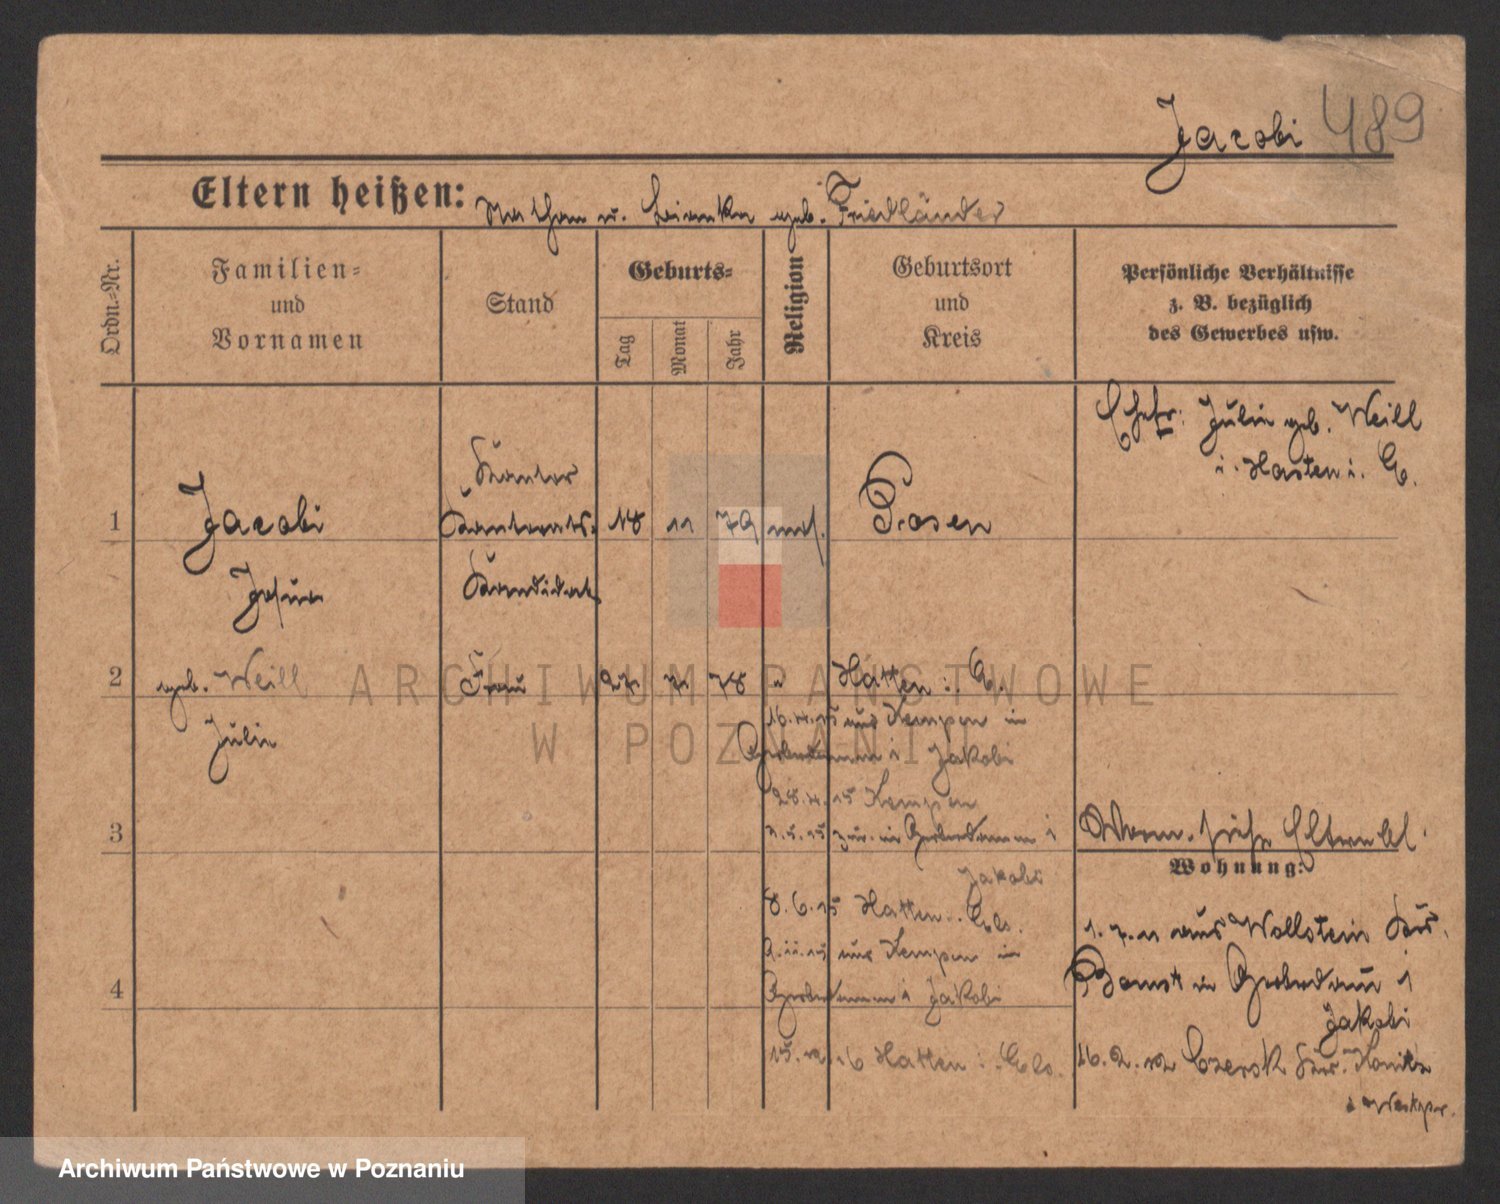 Jacobi 489
Eltern heißen: Nathan u. Bianka geb. Friedländer
Ordn.-Nr.
Familien-
und
Vornamen
Stand
Geburts-
Tag
Monat
Jahr
Religion
Geburtsort
und
Kreis
Persönliche Verhältnisse
z. B. bezüglich
des Gewerbes usw.
Ehefr: Julie geb. Weill
i. Hatten i. E.
Kantor
1 Jacobi 18 11 79 mos. Posen
Josua Kandidat
2 geb. Weill Frau 27 7 78 " Hatten i. E.
Julie
16.4.15 aus Kempen in
Grabendamm 1 Jakobi
28.4.15 Kempen
zur. in Grabendamm 1
3
Jakobi
Wohnung:
8.6.15 Hatten i. Els.
1.7.11 aus Wollstein Kr.
9.11.15 aus Kempen in
4 Grabendamm 1 Jakobi
Bomst in Grabendamm 1
Jakobi
15.12.16 Hatten i. Els.
16.2.12 Czersk Kr. Konitz
i. Westpr.
ARCHIWUM PAŃSTWOWE
W POZNANIU
Archiwum Państwowe w Poznaniu